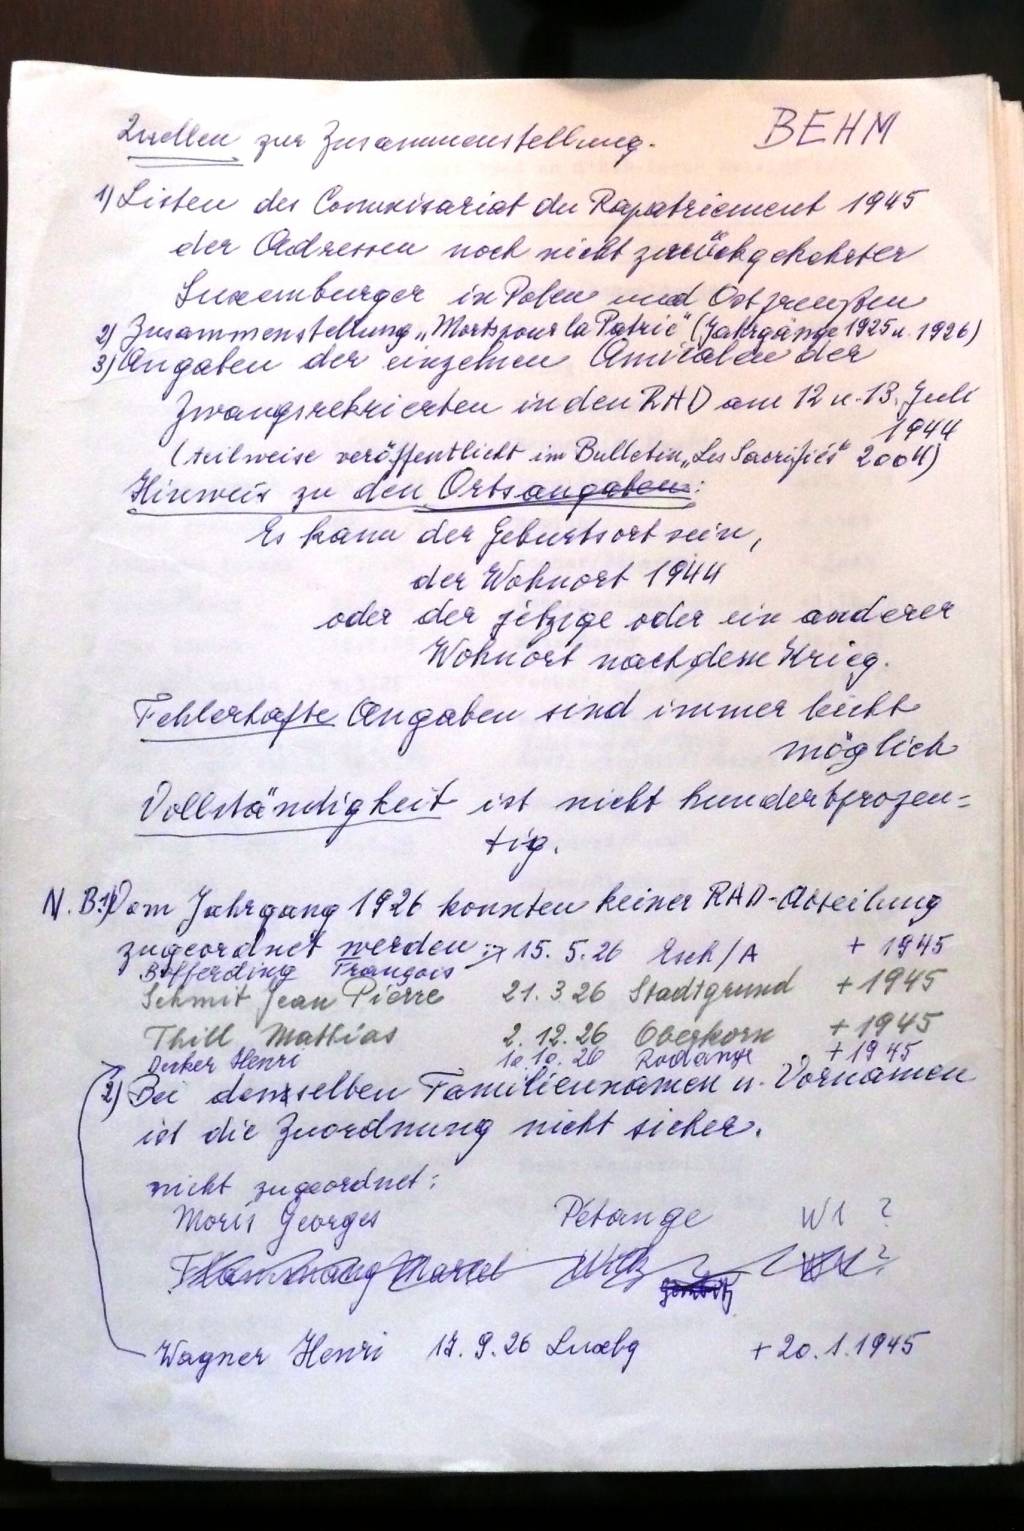 Quellen zur Zusammenstellung. BEHM
1) Listen des Commissariat du Rapatriement 1945
der Adressen noch nicht zurückgekehrter
Luxemburger in Polen und Ostpreußen
2) Zusammenstellung „Morts pour la Patrie" (Jahrgänge 1925 u. 1926)
3) Angaben der einzelnen Amicalen der
Zwangsrekrierten in den RAD am 12 u. 13. Juli
1944
(teilweise veröffentlicht im Bulletin „Les Sacrifiés" 2004)
Hinweis zu den Ortsangaben:
Es kann der Geburtsort sein,
der Wohnort 1944
oder der jetzige oder ein anderer
Wohnort nach dem Krieg.
Fehlerhafte Angaben sind immer leicht
möglich
Vollständigkeit ist nicht hundertprozen=
tig.
N.B. 1) Vom Jahrgang 1926 konnten keiner RAD-Abteilung
zugeordnet werden:
Bofferding François 15. 5. 26 Esch/A + 1945
Schmit Jean Pierre 21. 3 26 Stadtgrund + 1945
Thill Mathias 2. 12. 26 Oberkorn + 1945
Decker Henri 10. 10. 26 Rodange + 1945
2) Bei denselben Familiennamen u. Vornamen
ist die Zuordnung nicht sicher.
nicht zugeordnet:
Moris Georges Pétange W1 ?
Wagner Henri 17. 9. 26 Luxbg + 20. 1. 1945